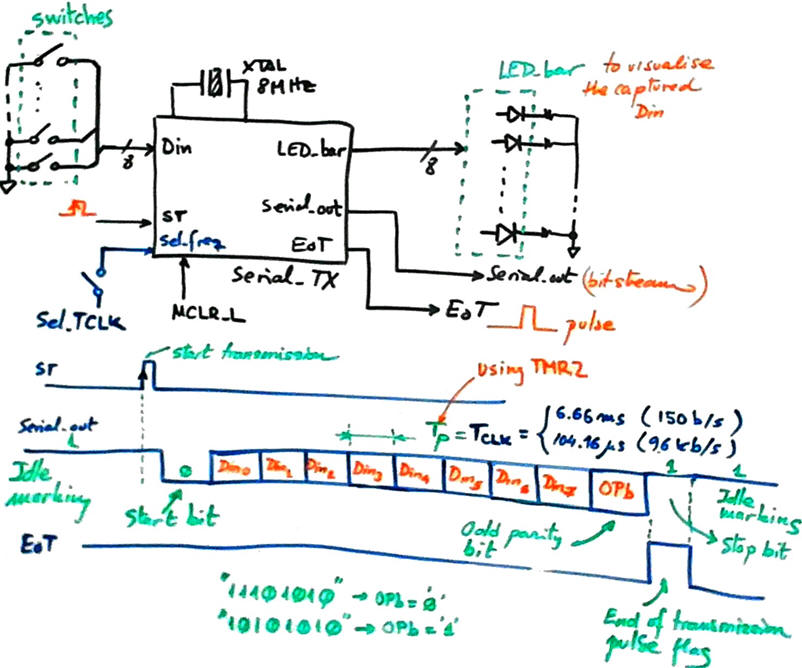 switches
XTAL
8MHz
LED_bar
to visualise
the captured
Din
8
Din
LED_bar
8
ST
Serial_out
Sel_freq
EoT
Serial_TX
Serial_out (bitstream)
MCLR_L
EoT
pulse
Sel_TCLK
start transmission
ST
using TMR2
Serial_out
1
Tp = TCLK = { 6.66 ms (150 b/s)
104.16 μs (9.6 kb/s)
Idle
marking
0
Din0
Din1
Din2
Din3
Din4
Din5
Din6
Din7
OPb
1
1
Idle
marking
Start bit
Odd parity
bit
Stop bit
EoT
"11101010" → OPb = '0'
"10101010" → OPb = '1'
End of transmission
pulse flag